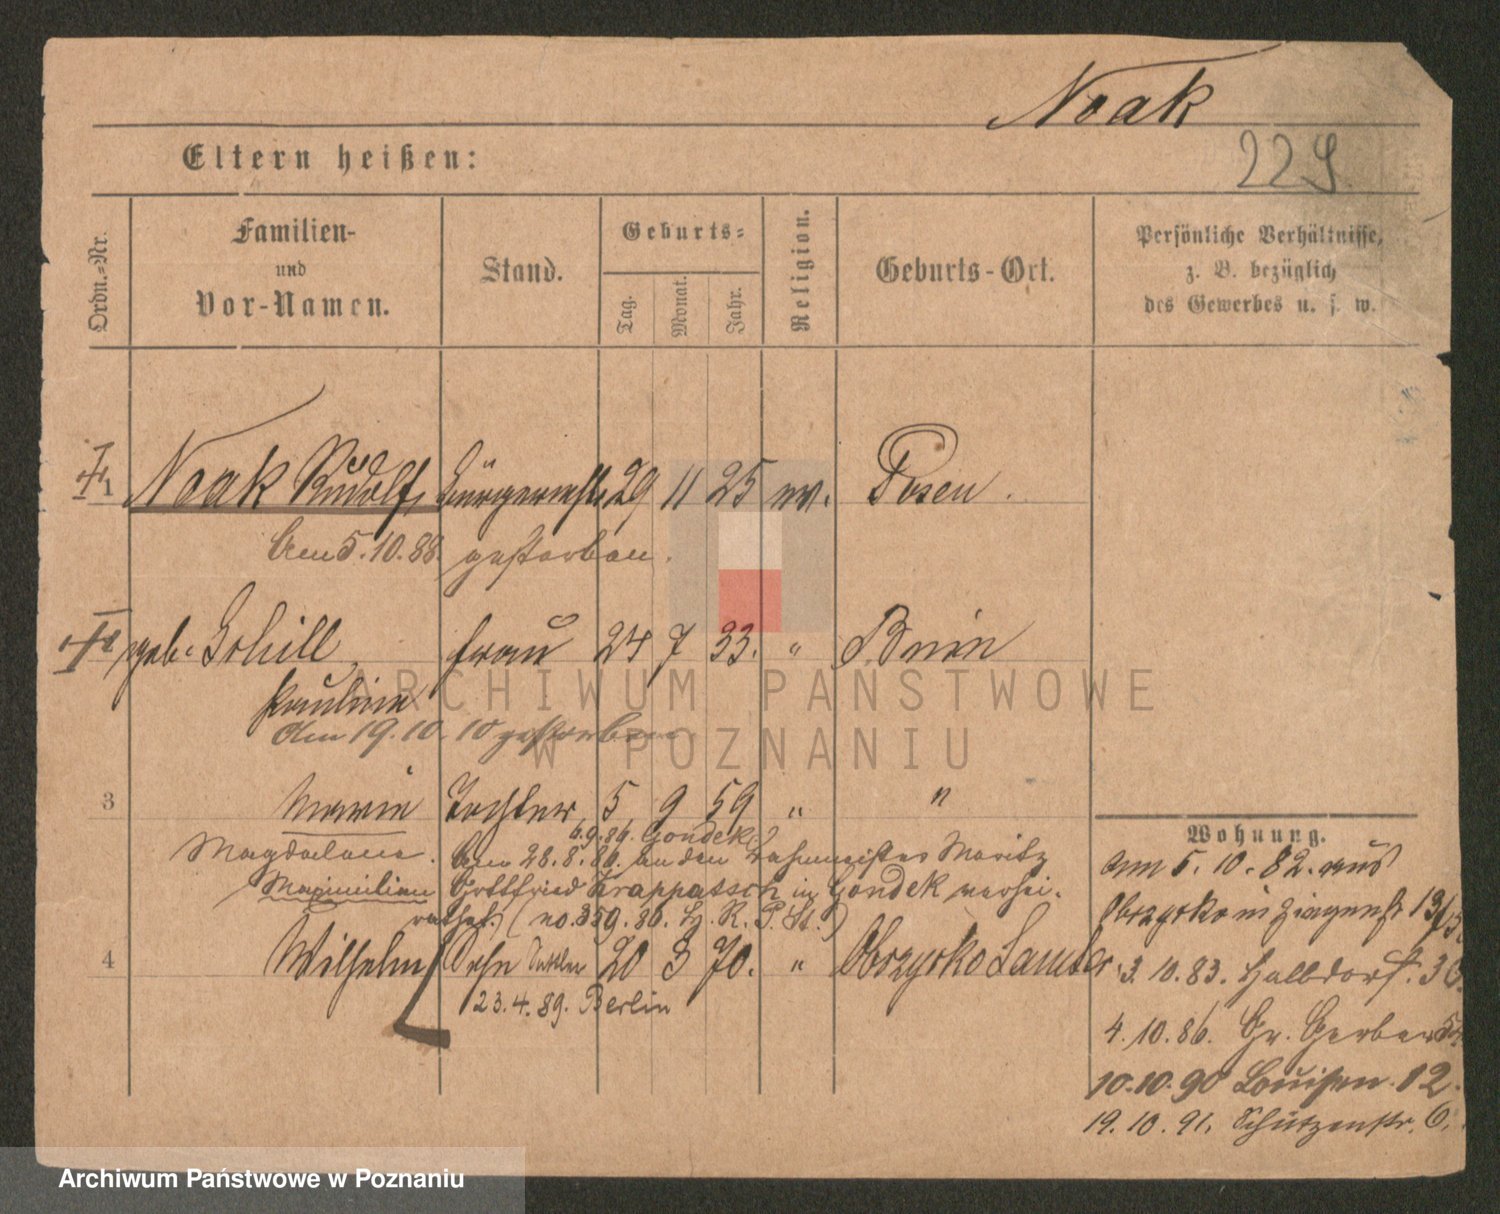 Noak
229.
Eltern heißen:
Ordn.-Nr.
Familien-
und
Vor-Namen.
Stand.
Geburts-
Tag.
Monat.
Jahr.
Religion.
Geburts-Ort.
Persönliche Verhältnisse,
z. B. bezüglich
des Gewerbes u. s. w.
1 Noak Rudolf, 29 11 25 ev. Posen.
Am 5.10.88. gestorben.
2 geb. Schill, Frau 24 7 33. " Bnin
Pauline
Am 19.10.10 gestorben.
ARCHIWUM PAŃSTWOWE
W POZNANIU
3 Marie Tochter 5 9 59 " "
6.9.86. Gondek
Magdalena. Am 28.8.86. an den Bahnmeister Moritz
Maximilian Gottfried Krappatsch in Gondek verhei-
rathet. (no. 359. 86. H. R. P. St.)
4 Wilhelm Sohn 20 3 70. " Obrzycko Samter
23.4.89. Berlin
Wohnung.
Am 5.10.82. aus
Obrzycko in Ziegenstr
3.10.83. Halbdorfstr. 30.
4.10.86. Gr. Gerber
10.10.90 Louisen. 12.
19.10.91. Schützenstr. 6.
Archiwum Państwowe w Poznaniu